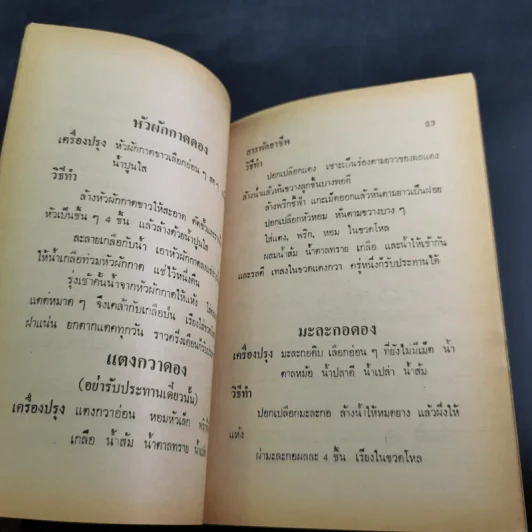 หัวผักกาดดอง
เครื่องปรุง หัวผักกาดขาวเลือกอ่อน ๆ สด ๆ
น้ำปูนใส
วิธีทำ
ล้างหัวผักกาดขาวให้สะอาด ตัดขั้วและราก
หัวเป็นชิ้น ๆ 4 ชิ้น แล้วล้างด้วยน้ำปูนใส
ละลายเกลือกับน้ำ เอาหัวผักกาดลง
ให้น้ำเกลือท่วมหัวผักกาด แช่ไว้หนึ่งคืน
รุ่งเช้าคั้นน้ำจากหัวผักกาดให้แห้ง
แดดหมาด ๆ จึงเคล้ากับเกลือป่น เรียง
ฝาแน่น ยกตากแดดทุกวัน ราวครึ่งเดือน
แตงกวาดอง
(อย่ารับประทานเดี๋ยวนั้น)
เครื่องปรุง แตงกวาอ่อน หอมหัวเล็ก
เกลือ น้ำส้ม น้ำตาลทราย
สารพัดอาชีพ 23
วิธีทำ
ปอกเปลือกแตง เซาะเป็นร่องตามยาวของผลแตง
ล้างน้ำแล้วหั่นขวางลูกชิ้นบางพอดี
ล้างพริกชี้ฟ้า แกะเม็ดออกแล้วหั่นตามยาวเป็นฝอย
ปอกเปลือกหัวหอม หั่นตามขวางบาง ๆ
ใส่แตง, พริก, หอม ในขวดโหล
ผสมน้ำส้ม น้ำตาลทราย เกลือ และน้ำให้เข้ากัน
และรสดี เทลงในขวดแตงกวา ครู่หนึ่งก็รับประทานได้
มะละกอดอง
เครื่องปรุง มะละกอดิบ เลือกอ่อน ๆ ที่ยังไม่มีเม็ด น้ำ
ตาลหม้อ น้ำปลาดี น้ำเปล่า น้ำส้ม
วิธีทำ
ปอกเปลือกมะละกอ ล้างน้ำให้หมดยาง แล้วผึ่งให้
แห้ง
ผ่ามะละกอผลละ 4 ชิ้น เรียงในขวดโหล